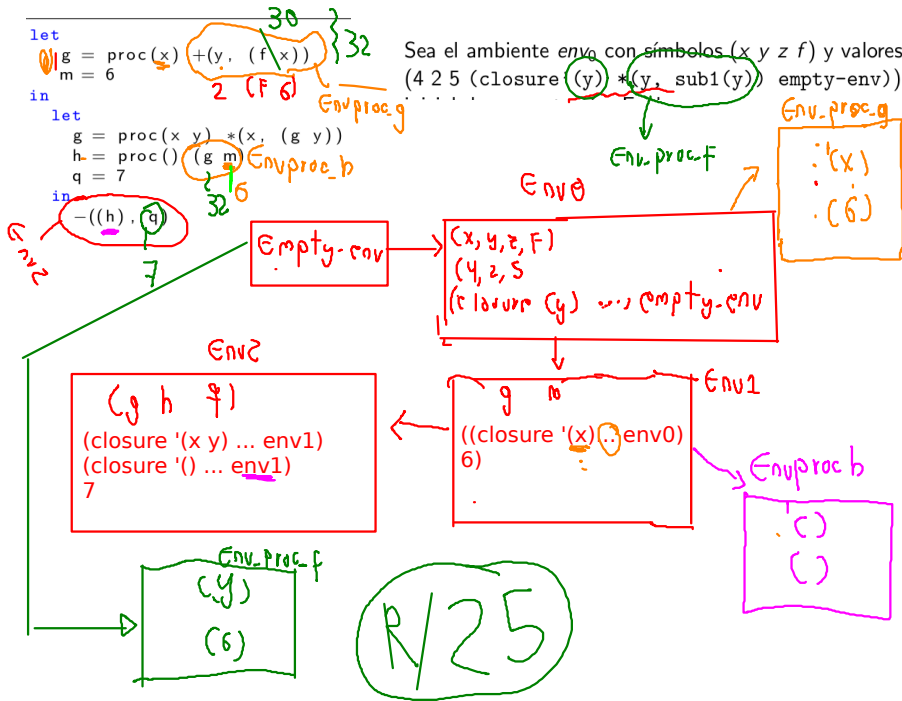 let
g = proc(x) +(y, (f x))
m = 6
in
let
g = proc(x y) *(x, (g y))
h = proc() (g m)
q = 7
in
-((h), q)
30
32
2 (F 6)
Envproc_g
Envproc_h
32
6
7
Env2
Sea el ambiente env0 con símbolos (x y z f) y valores
(4 2 5 (closure (y) *(y, sub1(y)) empty-env))
Env_proc_f
Env_proc_g
'(x)
(6)
Env0
Empty-env
(x, y, z, F)
(4, 2, 5
(closure (y) ..., empty-env
Env2
(g h q)
(closure '(x y) ... env1)
(closure '() ... env1)
7
Env1
g m
((closure '(x) ... env0)
6)
Envproc h
'()
()
Env_proc_f
(y)
(6)
R/25